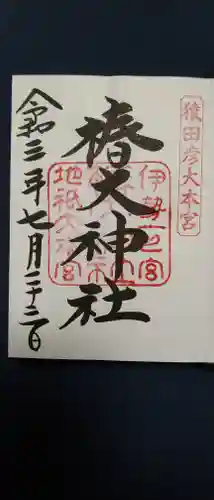 猿田彦大本宮
椿大神社
伊勢一之宮
地祇大本宮
令和三年七月二十二日